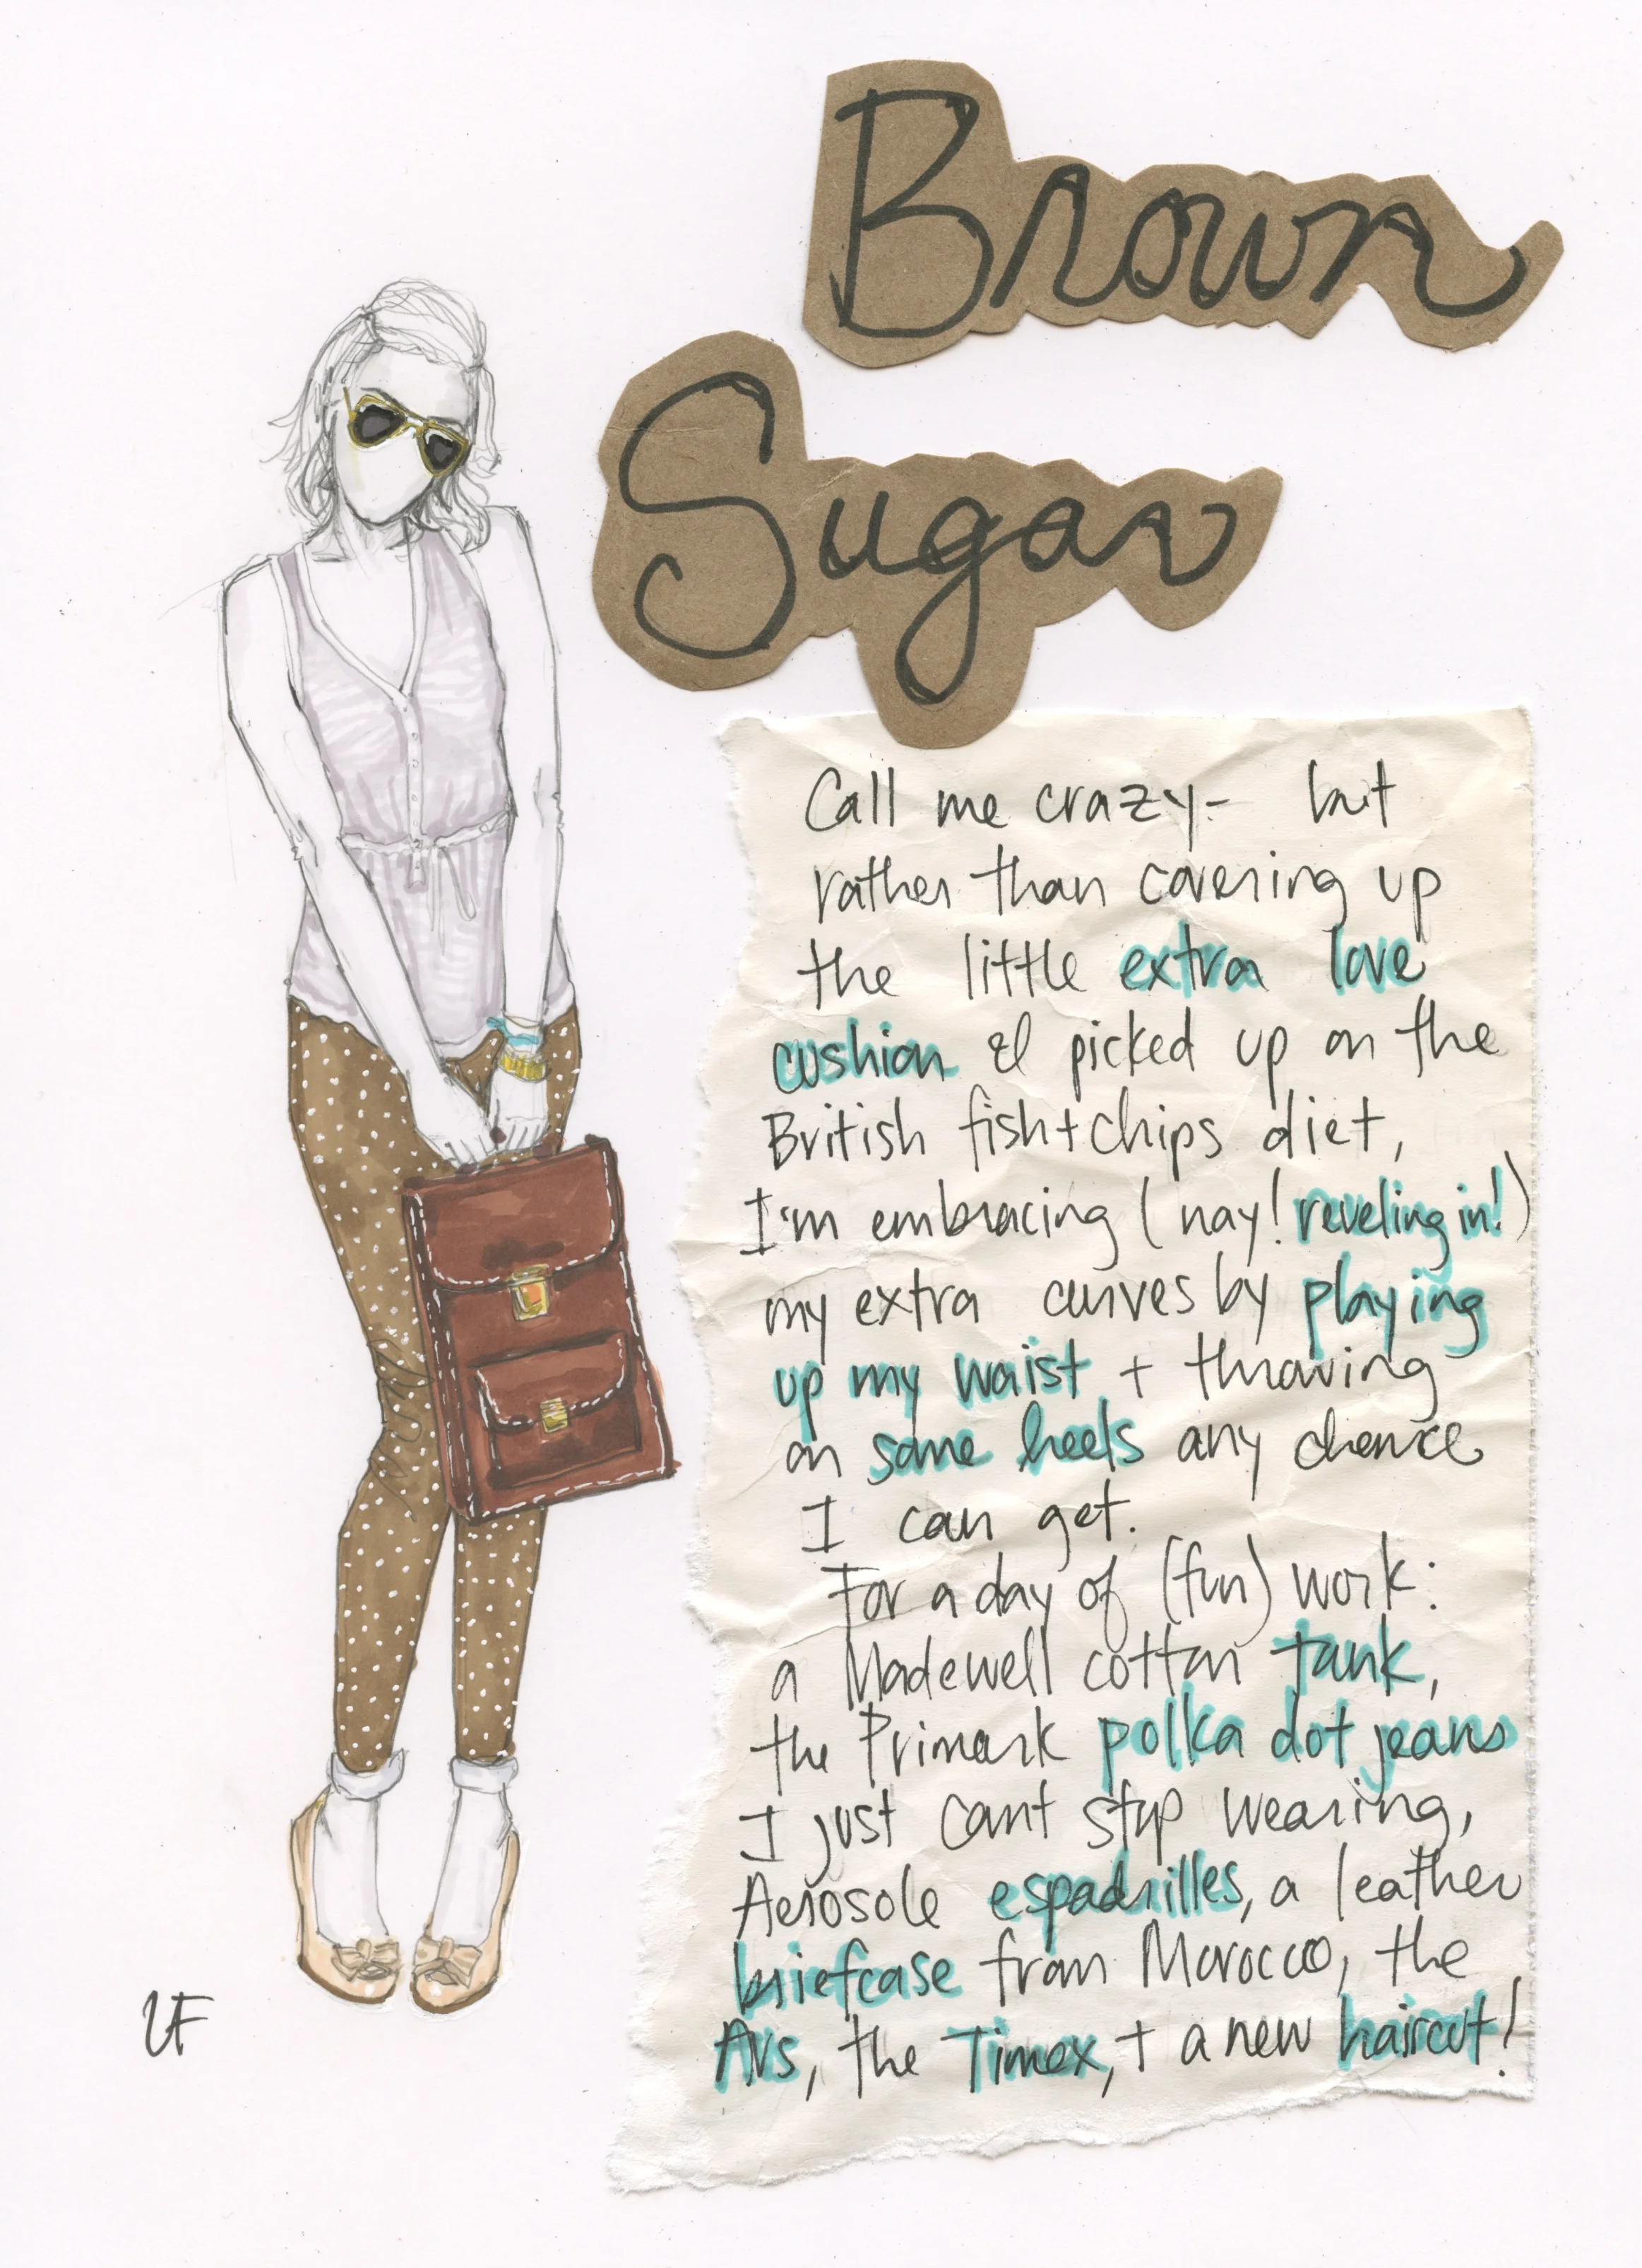 Brown
Sugar
Call me crazy- but
rather than covering up
the little extra love
cushion I picked up on the
British fish+chips diet,
I'm embracing (nay! reveling in!)
my extra curves by playing
up my waist + throwing
on some heels any chance
I can get.
For a day of (fun) work:
a Madewell cotton tank,
the Primark polka dot jeans
I just cant stop wearing,
Aerosole espadrilles, a leather
briefcase from Morocco, the
Avs, the Timex, + a new haircut!